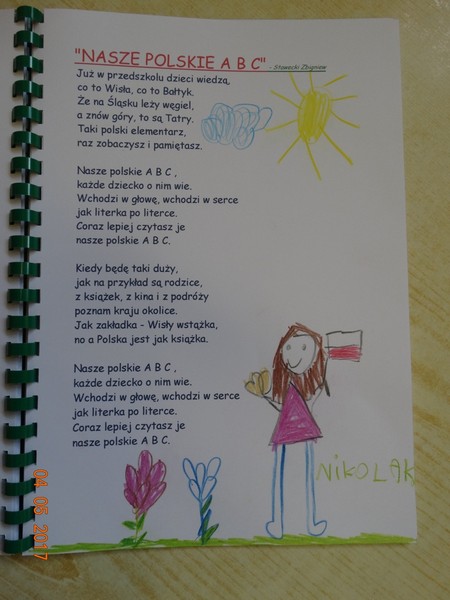 "NASZE POLSKIE A B C" - Stawecki Zbigniew
Już w przedszkolu dzieci wiedzą,
co to Wisła, co to Bałtyk.
Że na Śląsku leży węgiel,
a znów góry, to są Tatry.
Taki polski elementarz,
raz zobaczysz i pamiętasz.
Nasze polskie A B C ,
każde dziecko o nim wie.
Wchodzi w głowę, wchodzi w serce
jak literka po literce.
Coraz lepiej czytasz je
nasze polskie A B C.
Kiedy będę taki duży,
jak na przykład są rodzice,
z książek, z kina i z podróży
poznam kraju okolice.
Jak zakładka - Wisły wstążka,
no a Polska jest jak książka.
Nasze polskie A B C ,
każde dziecko o nim wie.
Wchodzi w głowę, wchodzi w serce
jak literka po literce.
Coraz lepiej czytasz je
nasze polskie A B C.
NiKOLAK
04 05 2017